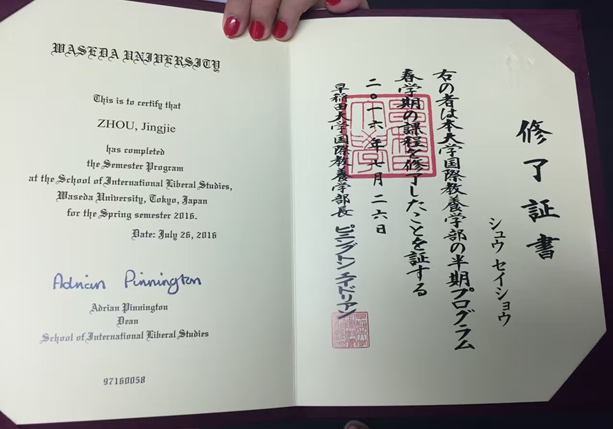 WASEDA UNIVERSITY
This is to certify that
ZHOU, Jingjie
has completed
the Semester Program
at the School of International Liberal Studies,
Waseda University, Tokyo, Japan
for the Spring semester 2016.
Date: July 26, 2016
Adrian Pinnington
Adrian Pinnington
Dean
School of International Liberal Studies
97160058
修了証書
シュウ セイショウ
右の者は本大学国際教養学部の半期プログラム
春学期の課程を修了したことを証する
二〇一六年七月二六日
早稲田大学国際教養学部長 ピニングトン エイドリアン